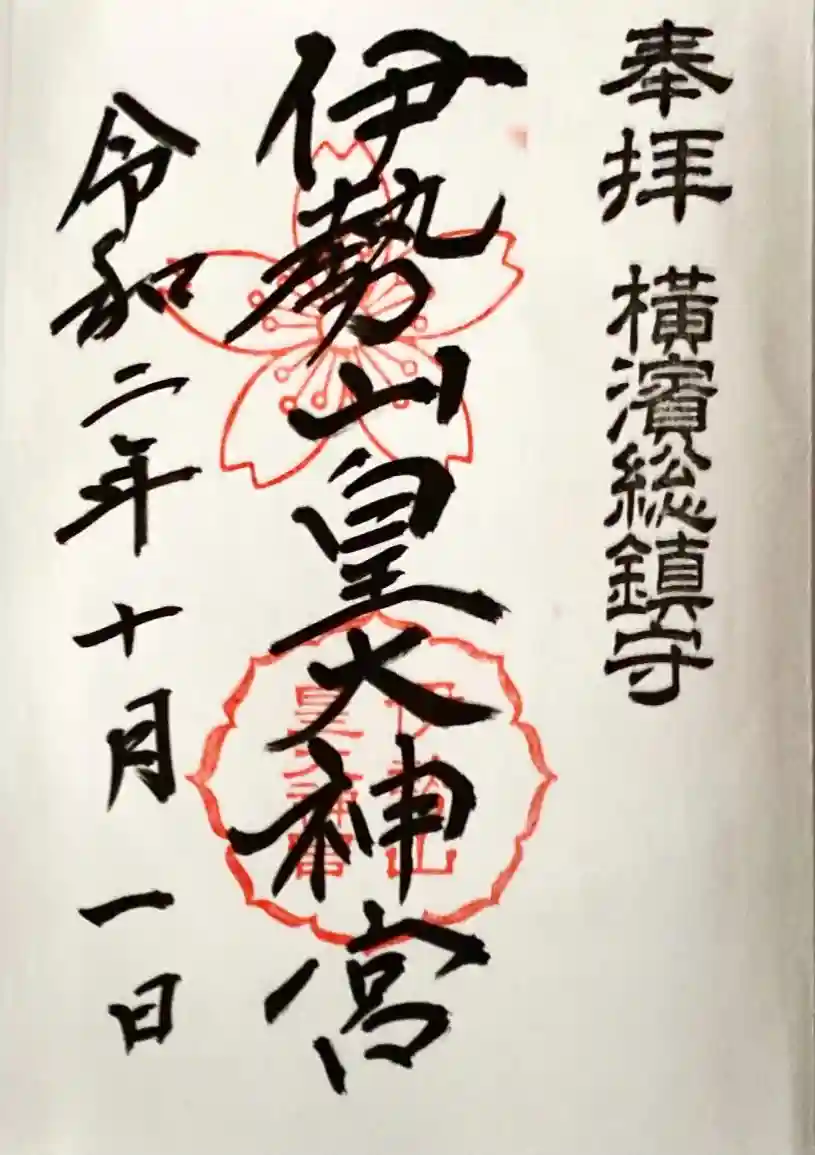 奉拝 横濱総鎮守
伊勢山皇大神宮
伊勢山
皇大神宮
令和二年十月一日